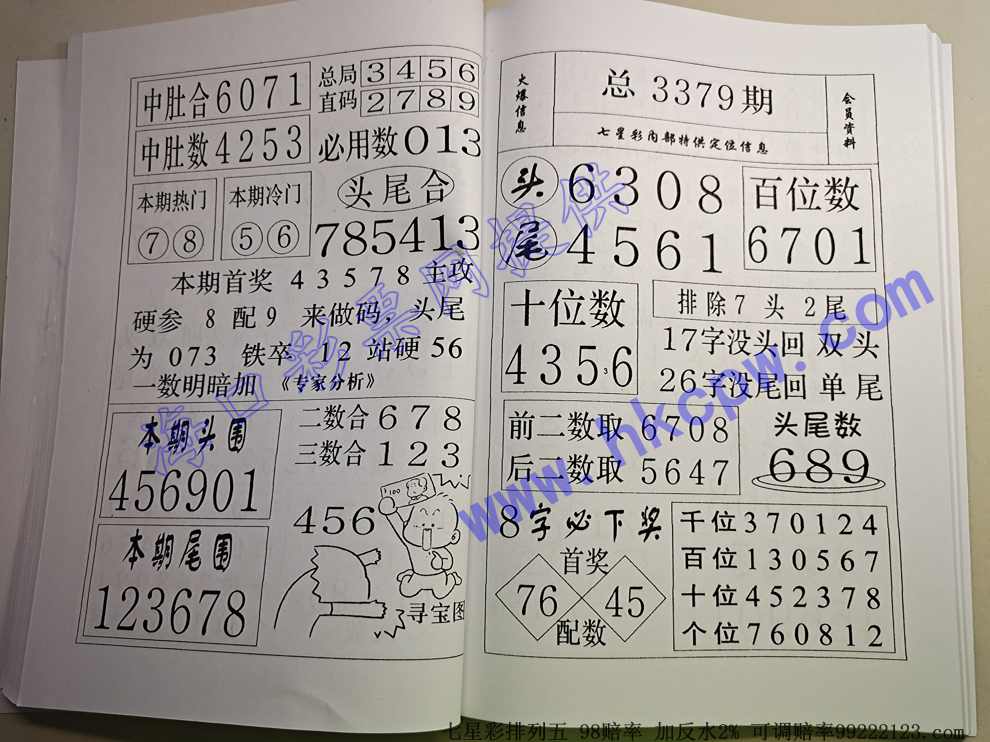 中肚合6071
总局 3 4 5 6
直码 2 7 8 9
中肚数4253
必用数013
本期热门
⑦⑧
本期冷门
⑤⑥
头尾合
785413
本期首奖 43578主攻
硬参 8 配9 来做码,头尾
为 073 铁卒 12 站硬 56
一数明暗加 《专家分析》
本期头围
456901
二数合 6 7 8
三数合 1 2 3
本期尾围
123678
456
100
寻宝图
火爆信息
总 3379期
七星彩内部特供定位信息
会员资料
头 6308
尾 4561
百位数
6701
十位数
4356
3
排除7 头 2尾
17字没头回 双 头
26字没尾回 单 尾
前二数取 6708
后二数取 5647
头尾数
689
8字必下奖
首奖
76 45
配数
千位370124
百位130567
十位452378
个位760812
海口彩票网提供
www.hkcpw.com
七星彩排列五 98赔率 加反水2% 可调赔率99222123.com